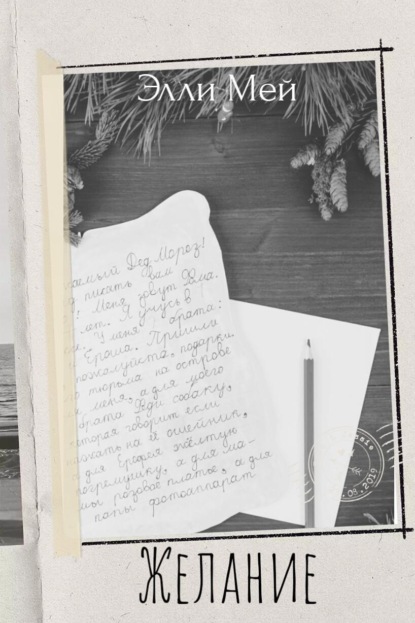 Элли Мей
аемый Дед Мороз!
д писать вам
! Меня зовут Дима.
лет. Я учусь в
У меня 2 брата:
Ераша. Пришли
пожалуйста, подарки.
тюрьма на острове
меня, а для моего
брата Феди собаку,
которая говорит если
нажать на её ошейник,
для Ерофея жёлтую
погремушку, а для ма-
мы розовое платье, а для
папы фотоаппарат.
.08.2019
ЖЕЛАНИЕ